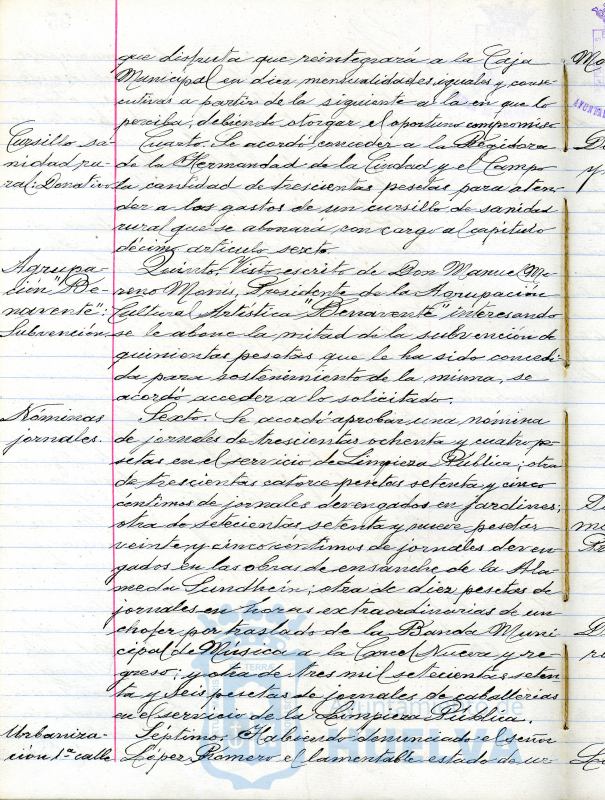 que disfruta que reintegrará a la Caja
Municipal en diez mensualidades iguales y conse-
cutivas a partir de la siguiente a la en que lo
perciba, debiendo otorgar el oportuno compromiso
Cursillo sa-
nidad ru-
ral: Donativo
Cuarto. Se acordó conceder a la Regidora
de la Hermandad de la Ciudad y el Campo
la cantidad de trescientas pesetas para aten-
der a los gastos de un cursillo de sanidad
rural que se abonará con cargo al capítulo
décimo artículo sexto.
Agrupa-
ción "Be-
navente":
Subvención.
Quinto. Visto escrito de Don Manuel Mo-
reno Monís, Presidente de la Agrupación
Cultural Artística "Benavente" interesando
se le abone la mitad de la subvención de
quinientas pesetas que le ha sido concedi-
da para sostenimiento de la misma, se
acordó acceder a lo solicitado.
Nóminas
jornales.
Sexto. Se acordó aprobar una nómina
de jornales de trescientas ochenta y cuatro pe-
setas en el servicio de Limpieza Pública; otra
de trescientas catorce pesetas setenta y cinco
céntimos de jornales devengados en jardines;
otra de setecientas setenta y nueve pesetas
veinte y cinco céntimos de jornales deven
gados en las obras de ensanche de la Ala-
meda Sundhein; otra de diez pesetas de
jornales en horas extraordinarias de un
chofer por traslado de la Banda Muni
cipal de Música a la Cruz Nueva y re-
greso; y otra de tres mil setecientas seten
ta y seis pesetas de jornales de caballerías
en el servicio de la Limpieza Pública.
Urbaniza-
ción 1ª calle
Séptimo. Habiendo denunciado el señor
López Romero el lamentable estado de ur
Ayuntamiento de
HUELVA